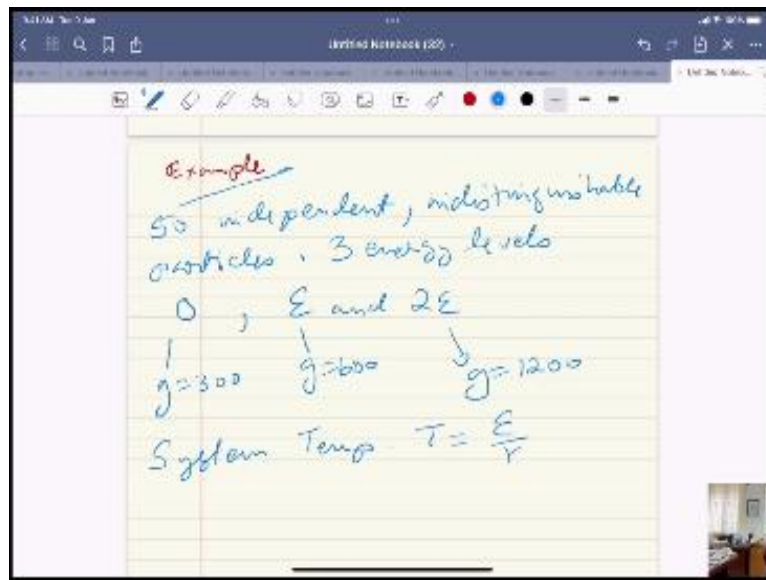 Untitled Notebook (32)
Example
50 independent, indistinguishable
particles. 3 energy levels
0, ε and 2ε
g=300 g=600 g=1200
System Temp. T = ε/r